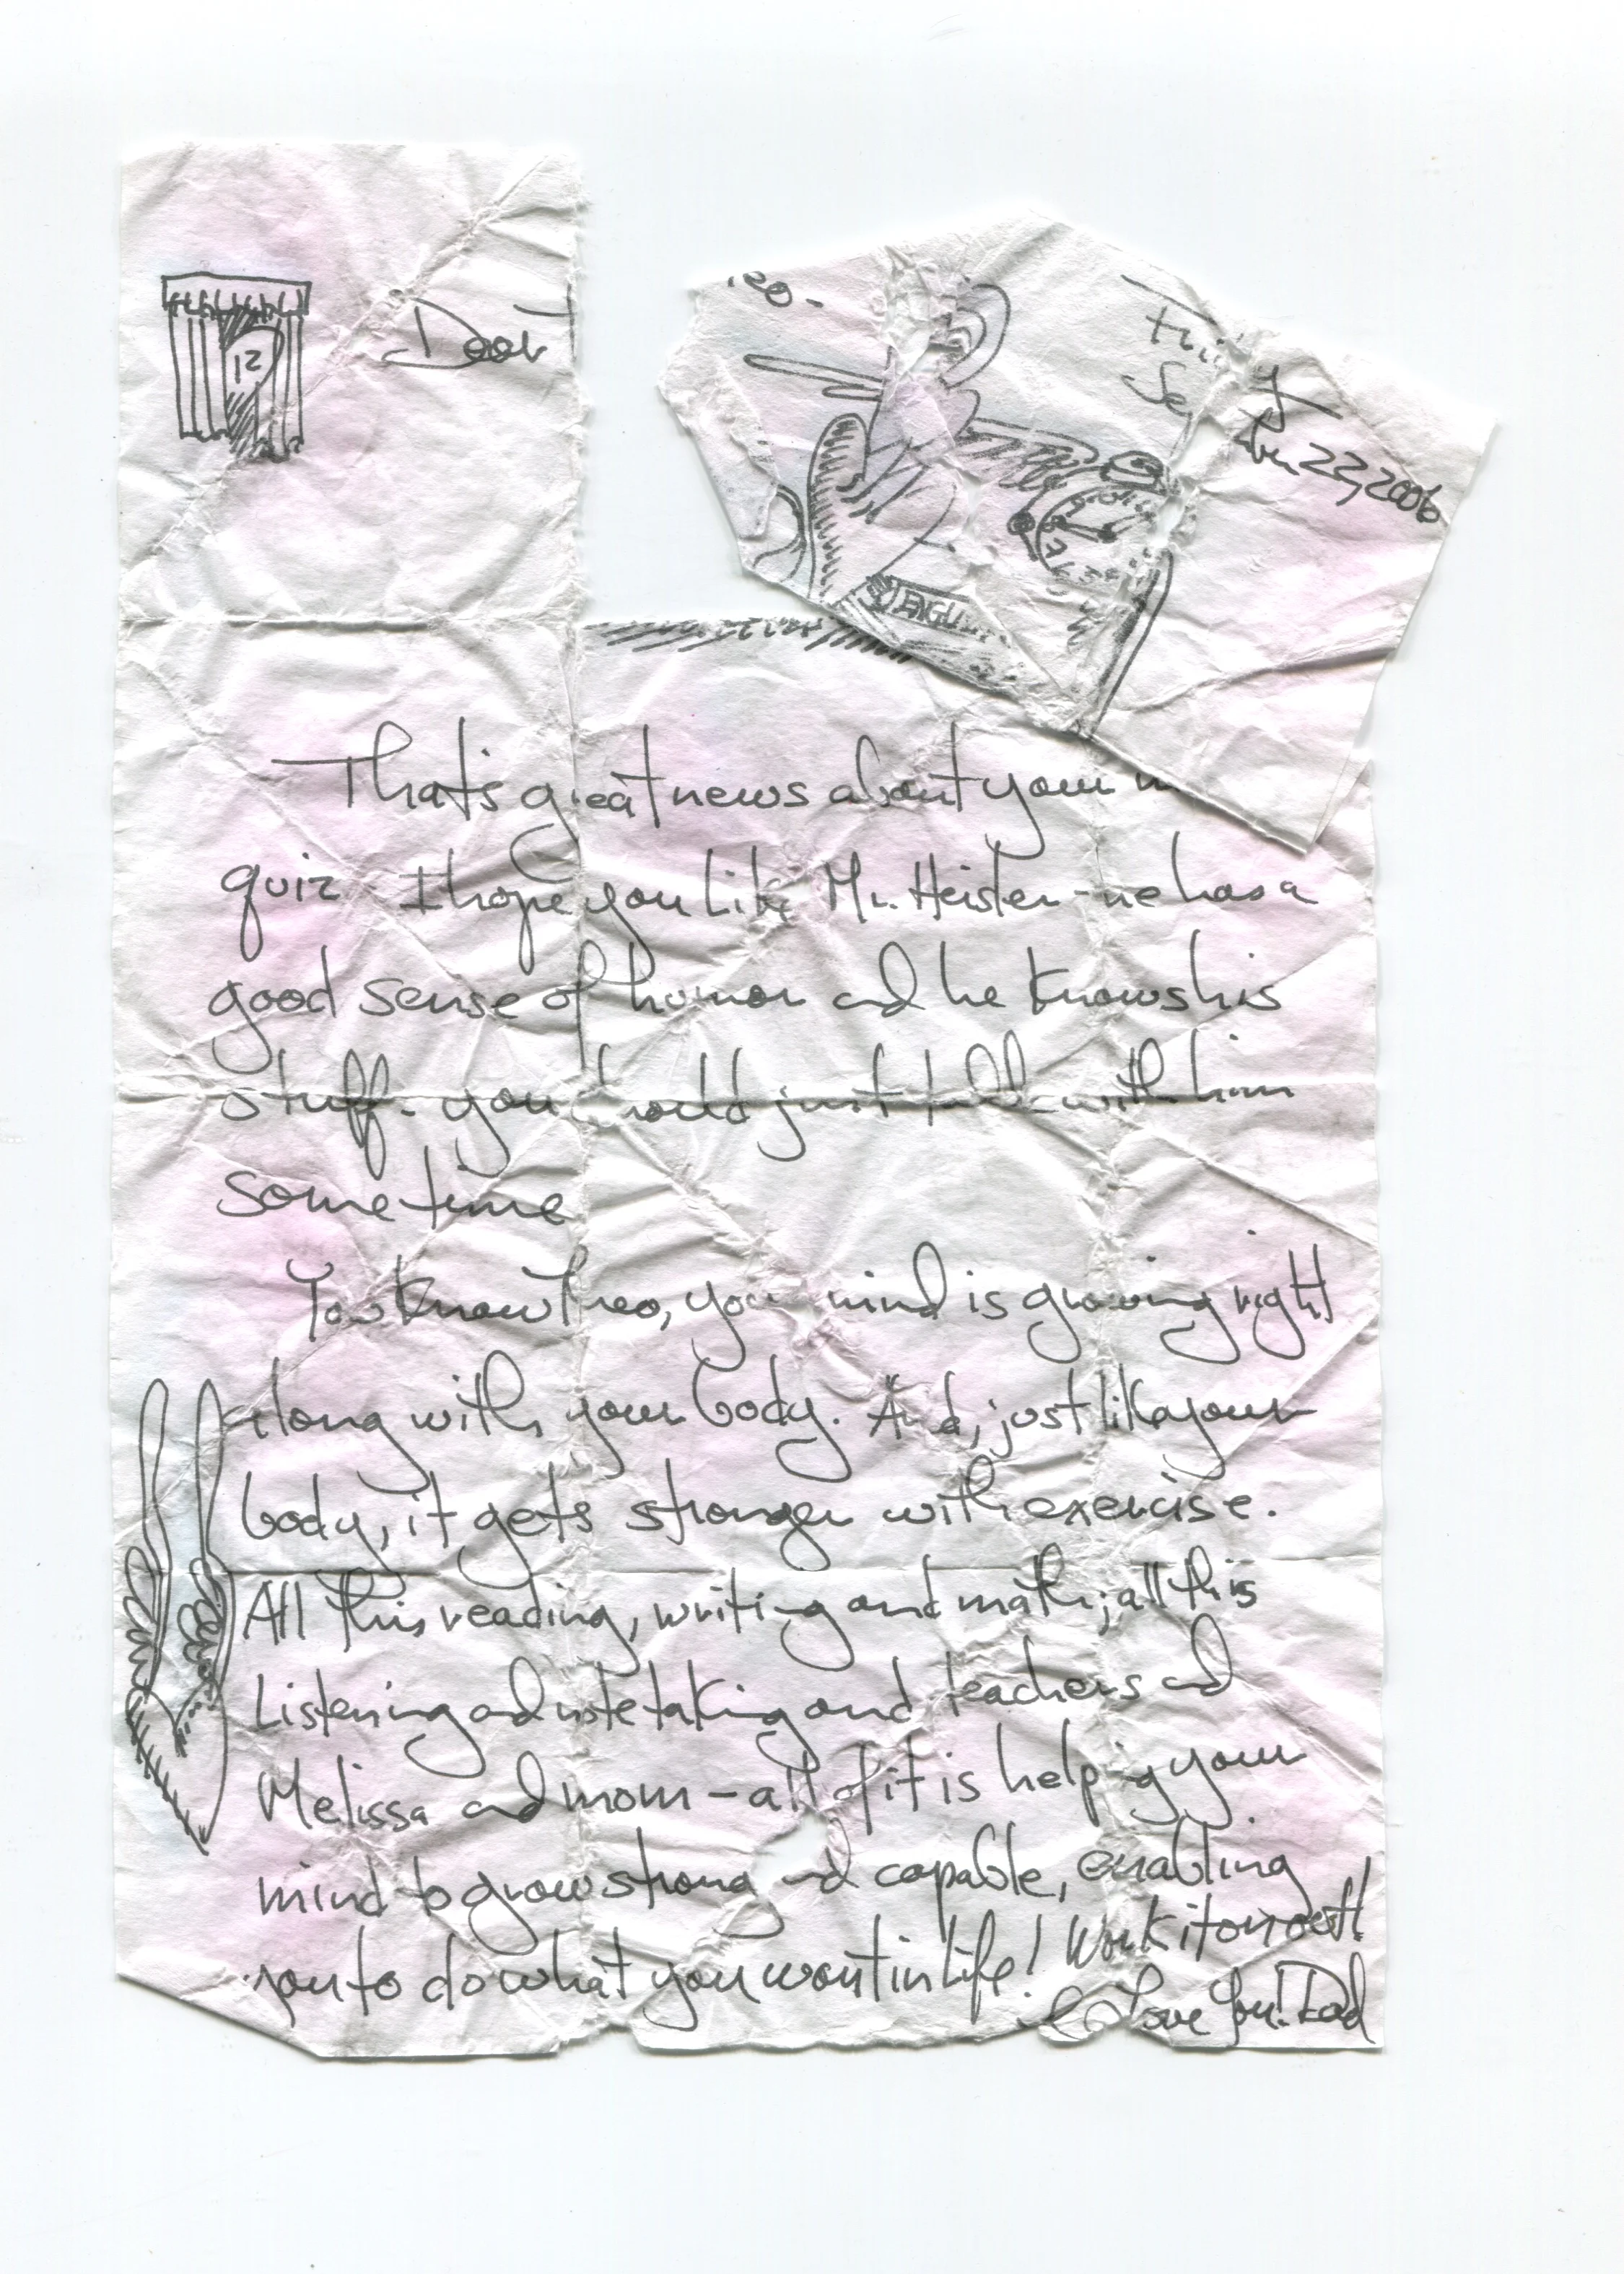 12
Dear T
eo-
Fri y
Se ber 22, 2006
ENGLI
That's great news about your
quiz. I hope you like Mr. Heisler - he has a
good sense of humor and he knows his
stuff. you should just talk with him
sometime
You know Theo, your mind is growing right
along with your body. And, just like your
body, it gets stronger with exercise.
All this reading, writing and math; all this
Listening and note taking and teachers and
Melissa and mom - all of it is helping your
mind to grow strong and capable, enabling
you to do what you want in life! Work it on out!
I Love You! Dad